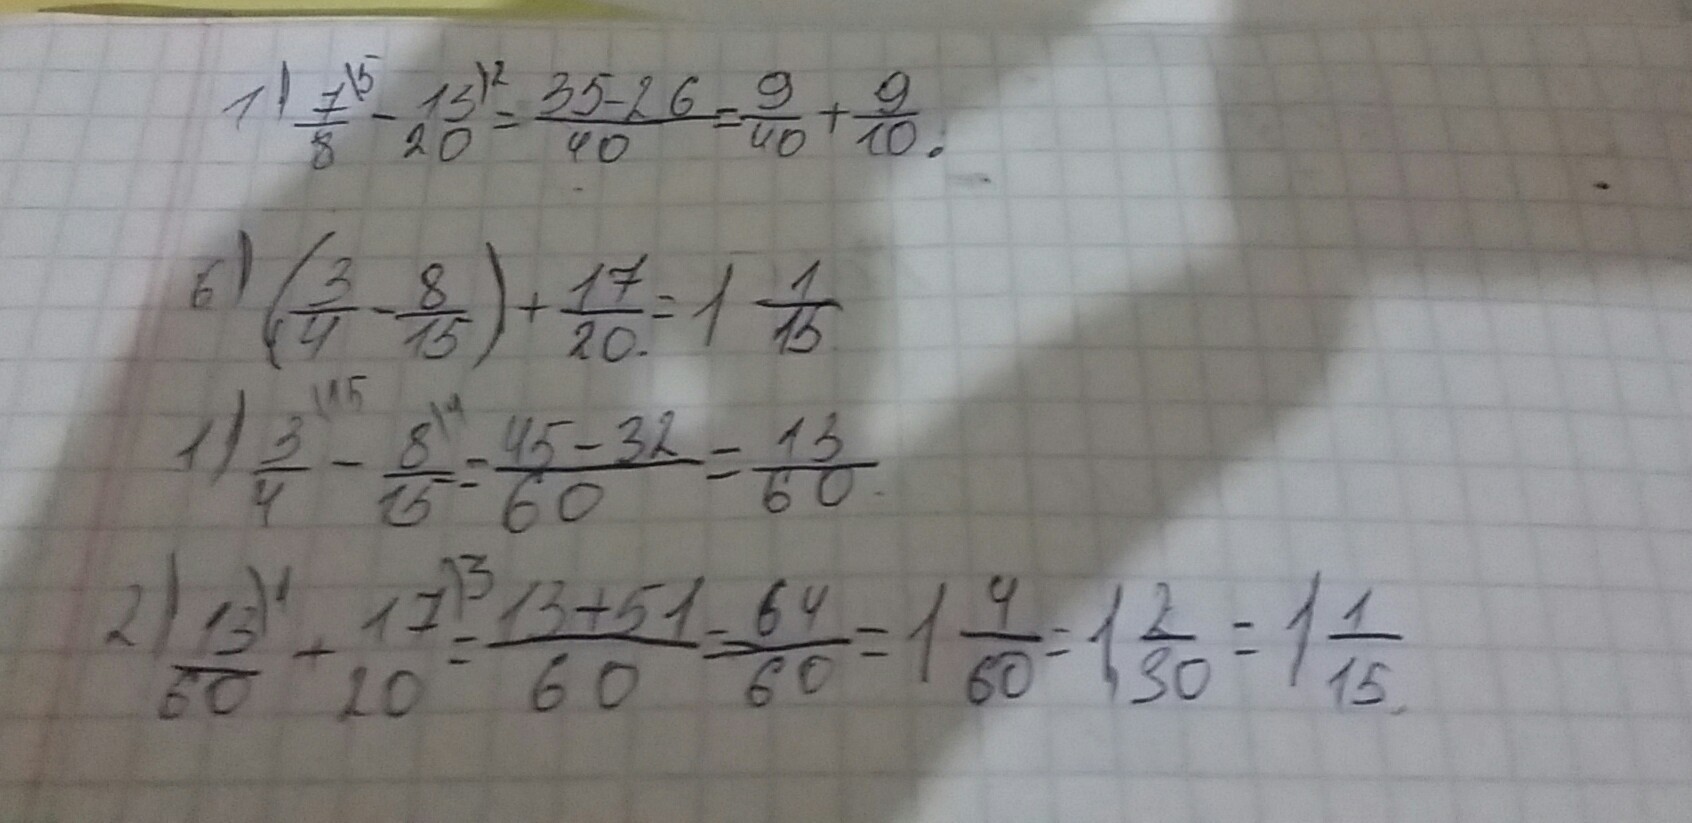 1) 7/8 \5 - 13/20 \2 = 35-26/40 = 9/40 + 9/10.
б) (3/4 - 8/15) + 17/20. = 1 1/15
1) 3/4 \15 - 8/15 \4 = 45-32/60 = 13/60.
2) 13/60 \1 + 17/20 \3 = 13+51/60 = 64/60 = 1 4/60 = 1 2/30 = 1 1/15.